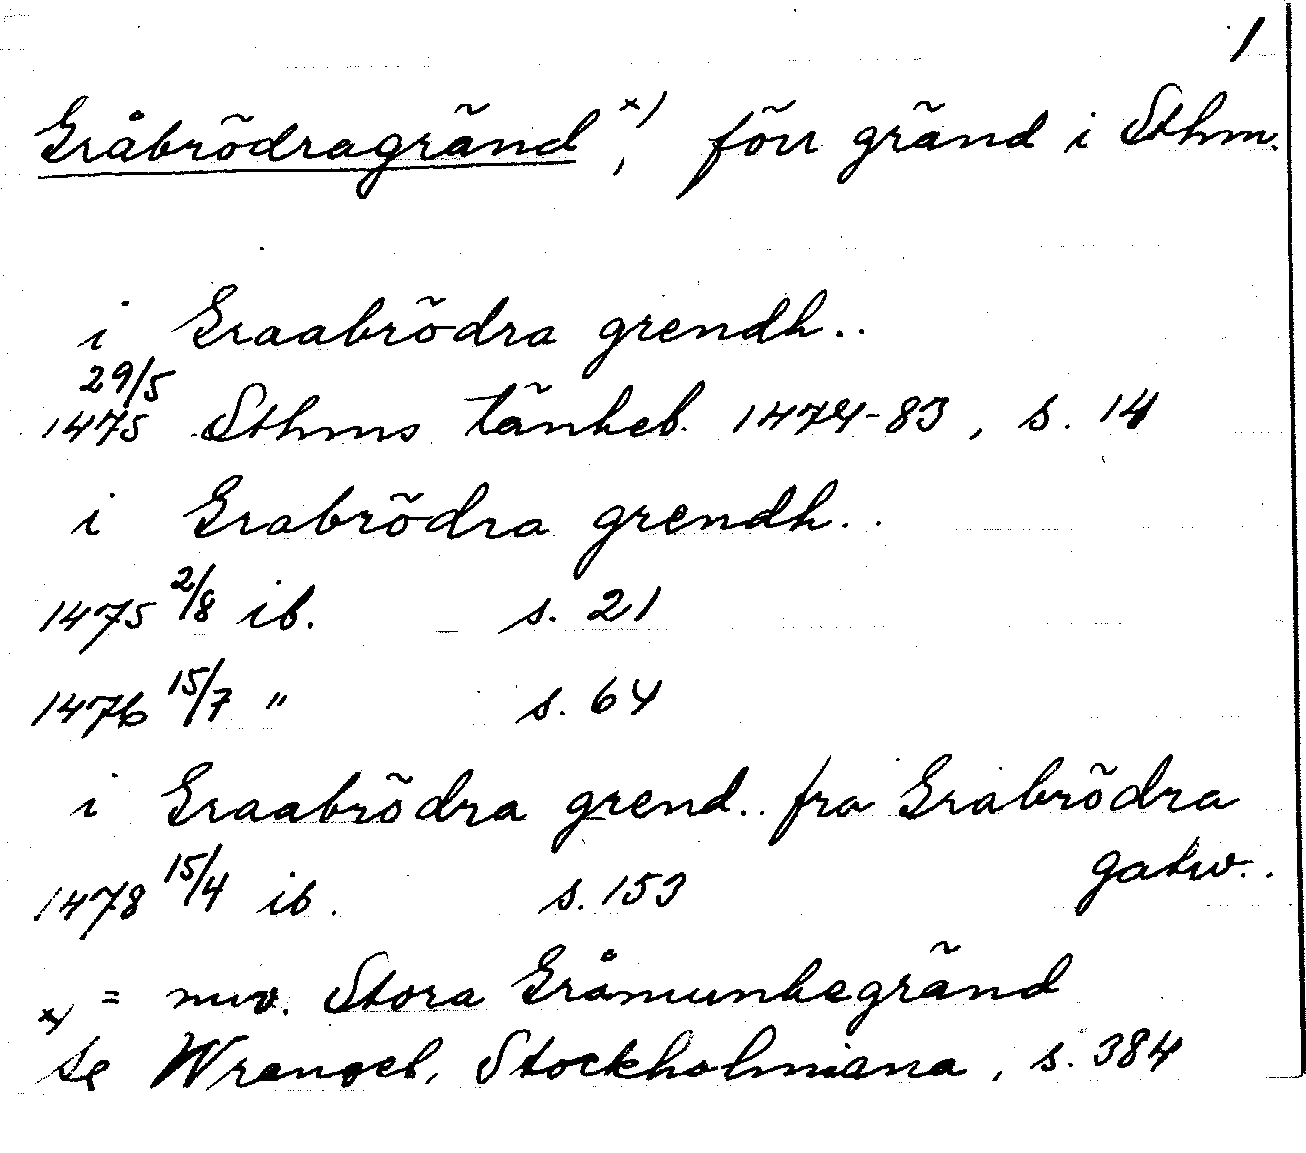 1
Gråbrödragränd x), förr gränd i Sthm.
i Graabrödra grendh..
29/5
1475 Sthms tänkeb. 1474-83, s. 14
i Grabrödra grendh..
1475 2/8 ib. s. 21
1476 15/7 " s. 64
i Graabrödra grend.. fra Grabrödra
gatw..
1478 15/4 ib. s. 153
x) = nuv. Stora Gråmunkegränd
Se Wrangel, Stockholmiana, s. 384